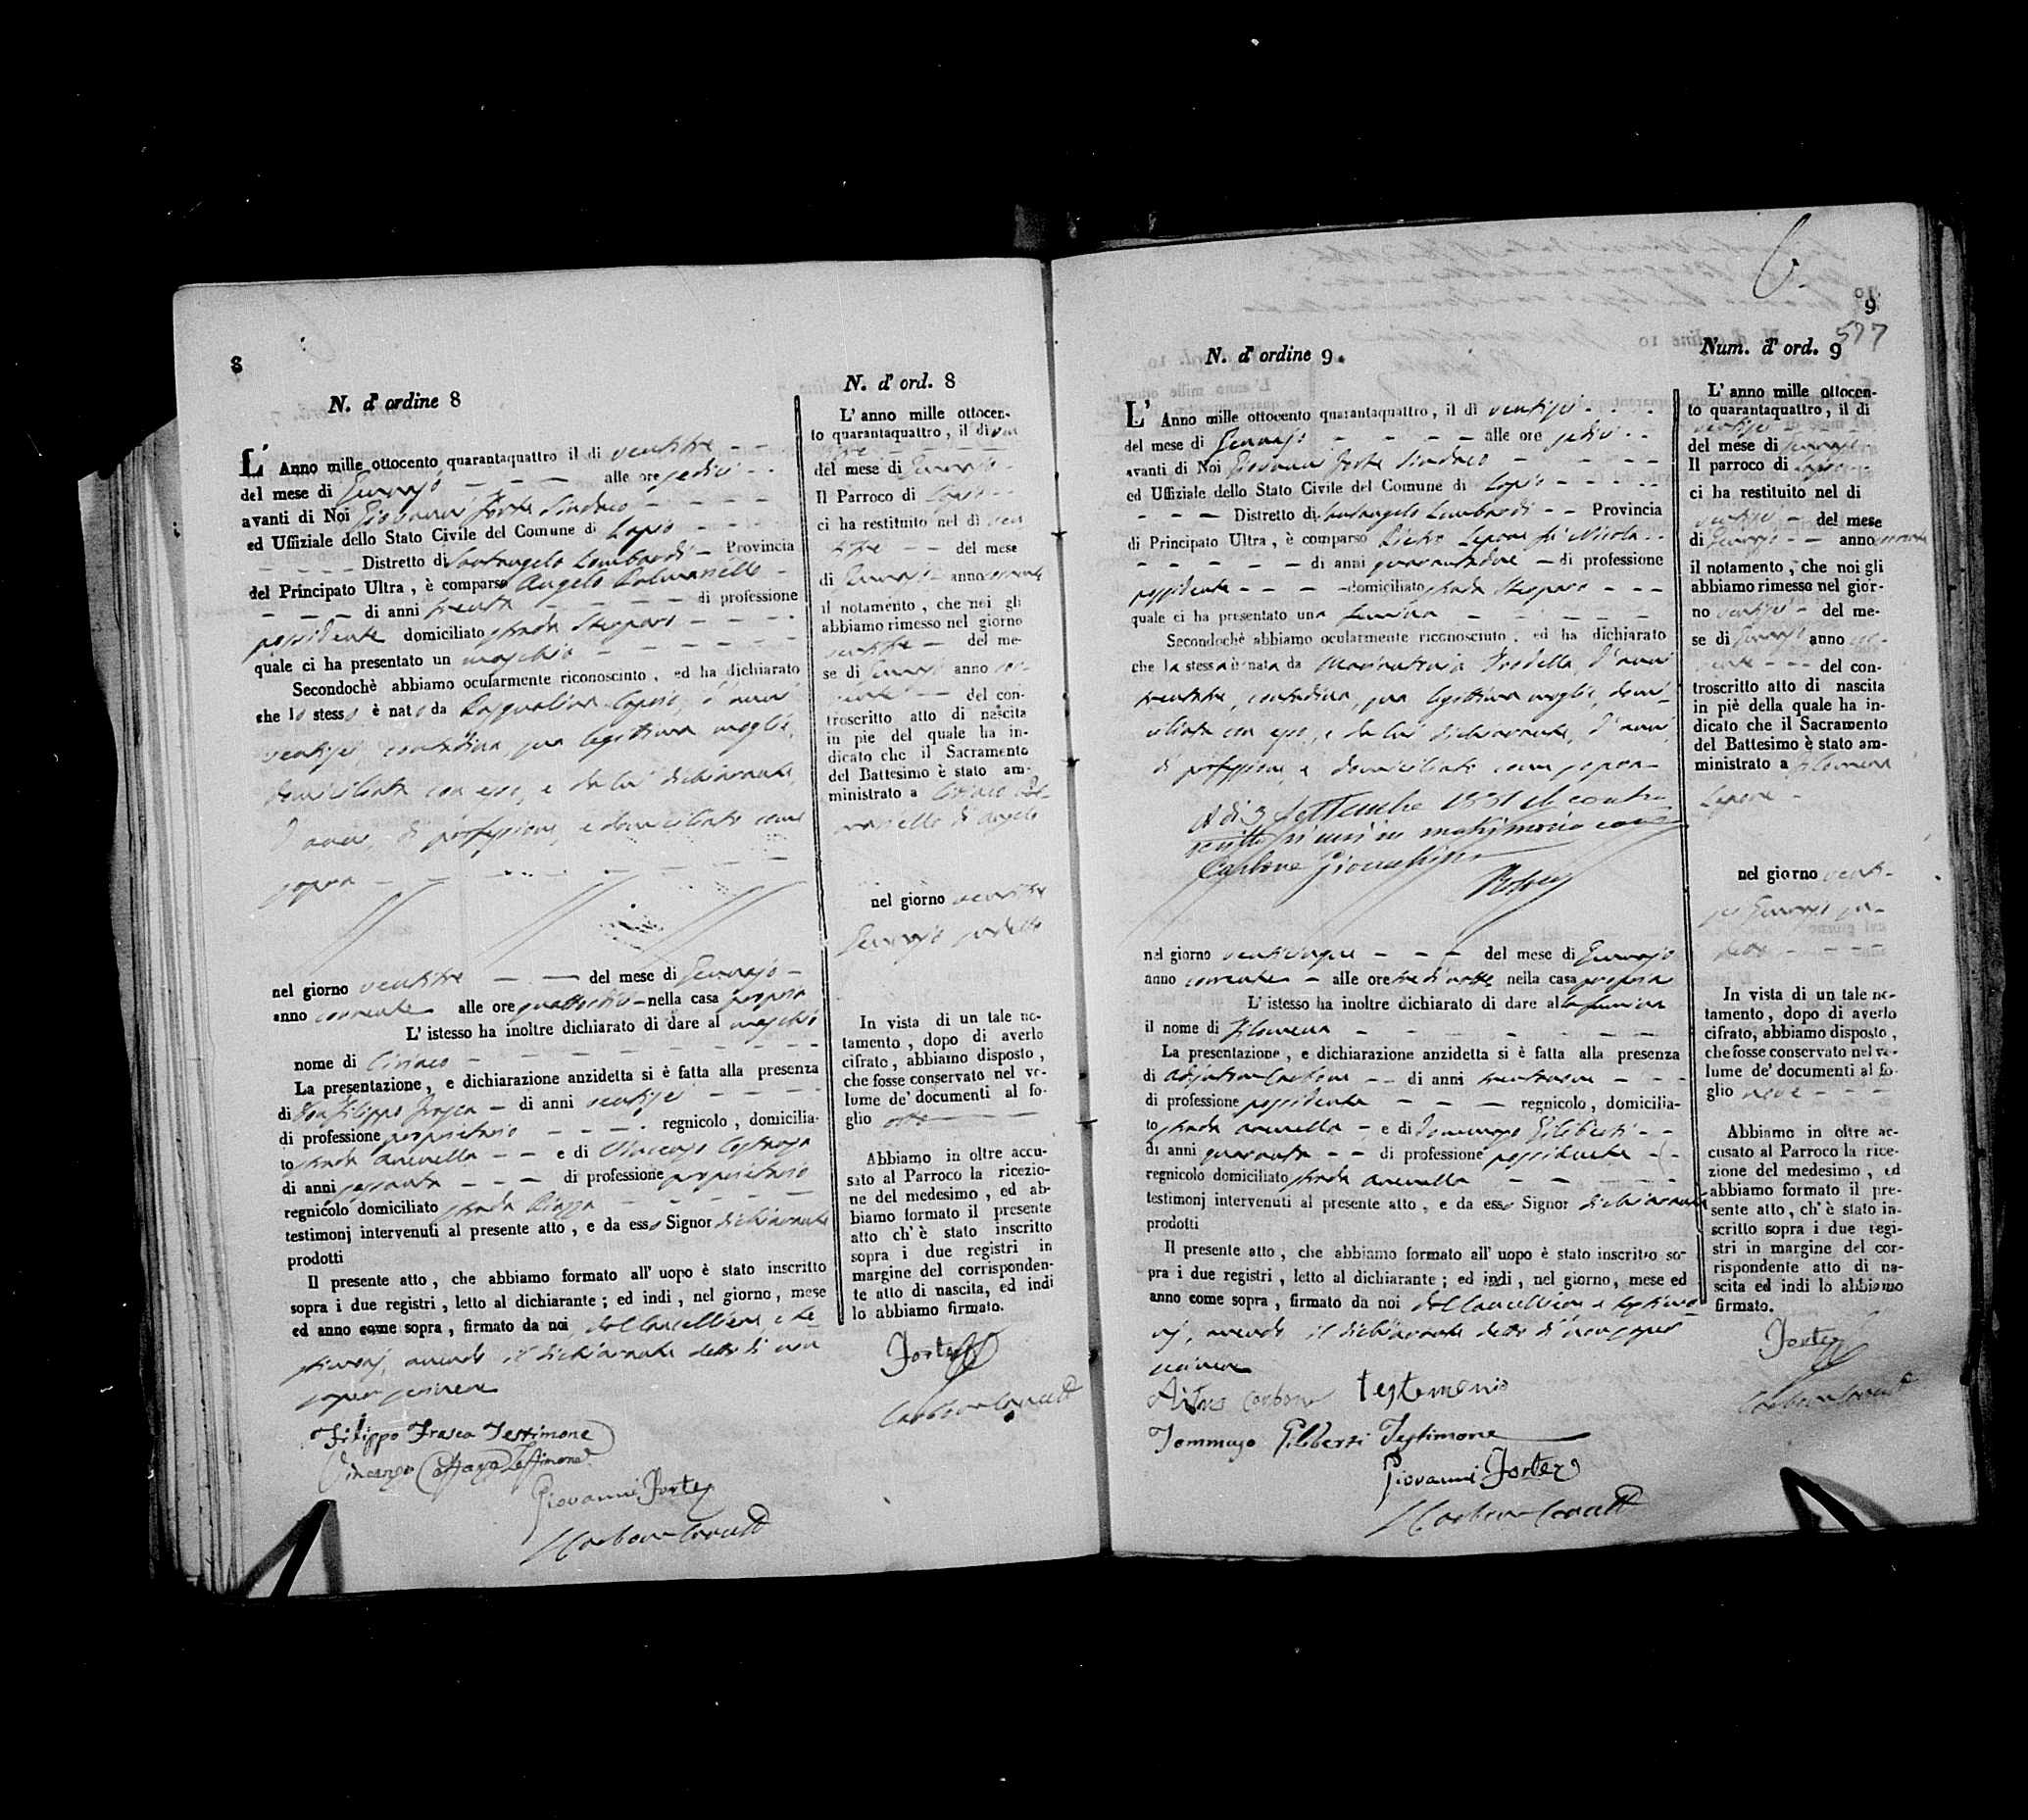 8
N. d' ordine 8
L' Anno mille ottocento quarantaquattro il di ventitre
del mese di Gennajo alle ore sedici
avanti di Noi Giovanni Forte Sindaco
ed Uffiziale dello Stato Civile del Comune di Lapio
Distretto di Santangelo Lombardi Provincia
del Principato Ultra, è comparso Angelo
di anni trenta di professione
possidente domiciliato strada
quale ci ha presentato un maschio
Secondochè abbiamo ocularmente riconosciuto, ed ha dichiarato
che lo stesso è nato da Pasqualina d'anni
ventisei contadina sua legittima moglie,
domiciliata con esso, e da lui dichiarante,
d'anni, di professione, e domiciliato come
sopra
nel giorno ventitre del mese di Gennajo
anno corrente alle ore quattordici nella casa propria
L' istesso ha inoltre dichiarato di dare al maschio
nome di Ciriaco
La presentazione, e dichiarazione anzidetta si è fatta alla presenza
di Don Filippo Frasca di anni ventisei
di professione proprietario regnicolo, domicilia-
to strada e di Vincenzo
di anni sessanta di professione proprietario
regnicolo domiciliato strada Piazza
testimonj intervenuti al presente atto, e da esso Signor dichiarante
prodotti
Il presente atto, che abbiamo formato all' uopo è stato inscritto
sopra i due registri, letto al dichiarante; ed indi, nel giorno, mese
ed anno come sopra, firmato da noi dal Cancelliere e te-
stimonj, avendo il dichiarante detto di non
saper scrivere
Filippo Frasca Testimone
Vincenzo Testimone
Giovanni Forte
Carbone
N. d' ord. 8
L' anno mille ottocen-
to quarantaquattro, il di ven
titre
del mese di Gennajo
Il Parroco di Lapio
ci ha restituito nel di ven
titre del mese
di Gennajo anno corrente
il notamento, che noi gli
abbiamo rimesso nel giorno
ventitre del me-
se di Gennajo anno cor-
rente del con-
troscritto atto di nascita
in pie del quale ha in-
dicato che il Sacramento
del Battesimo è stato am-
ministrato a Ciriaco
di Angelo
nel giorno ventitre
Gennajo suddetto
In vista di un tale no-
tamento, dopo di averlo
cifrato, abbiamo disposto,
che fosse conservato nel vo-
lume de' documenti al fo-
glio otto
Abbiamo in oltre accu-
sato al Parroco la ricezio-
ne del medesimo, ed ab-
biamo formato il presente
atto ch' è stato inscritto
sopra i due registri in
margine del corrisponden-
te atto di nascita, ed indi
lo abbiamo firmato.
Forte
Carbone
9
577
N. d' ordine 9.
L' Anno mille ottocento quarantaquattro, il di ventisei
del mese di Gennajo alle ore sedici
avanti di Noi Giovanni Forte Sindaco
ed Uffiziale dello Stato Civile del Comune di Lapio
Distretto di Santangelo Lombardi Provincia
di Principato Ultra, è comparso Pietro Lepore fu Nicola
di anni quarantadue di professione
possidente domiciliato strada
quale ci ha presentato una femina
Secondochè abbiamo ocularmente riconosciuto, ed ha dichiarato
che la stessa è nata da d'anni
trentatre, contadina, sua legittima moglie, domi-
ciliata con esso, e da lui dichiarante, d'anni
di professione, e domiciliato come sopra
A di 3 Settembre il contro
scritto si unì in matrimonio con
Carbone Gioacchino
nel giorno venticinque del mese di Gennajo
anno corrente alle ore tre di notte nella casa propria
L' istesso ha inoltre dichiarato di dare alla femina
il nome di Filomena
La presentazione, e dichiarazione anzidetta si è fatta alla presenza
di Carbone di anni
di professione possidente regnicolo, domicilia-
to strada e di Tommaso Giliberti
di anni quaranta di professione possidente
regnicolo domiciliato strada
testimonj intervenuti al presente atto, e da esso Signor dichiarante
prodotti
Il presente atto, che abbiamo formato all' uopo è stato inscritto so-
pra i due registri, letto al dichiarante; ed indi, nel giorno, mese ed
anno come sopra, firmato da noi dal Cancelliere e testimo-
nj, avendo il dichiarante detto di non saper
scrivere
Carbone testemonio
Tommaso Giliberti Testimone
Giovanni Forte
Carbone
Num. d' ord. 9
L' anno mille ottocen-
to quarantaquattro, il di
ventisei
del mese di Gennajo
Il parroco di Lapio
ci ha restituito nel di
ventisei del mese
di Gennajo anno corrente
il notamento, che noi gli
abbiamo rimesso nel gior-
no ventisei del me-
se di Gennajo anno cor-
rente del con-
troscritto atto di nascita
in piè della quale ha in-
dicato che il Sacramento
del Battesimo è stato am-
ministrato a Filomena
Lepore
nel giorno venti-
sei Gennajo sud-
detto
In vista di un tale no-
tamento, dopo di averlo
cifrato, abbiamo disposto,
che fosse conservato nel vo-
lume de' documenti al fo-
glio nove
Abbiamo in oltre ac-
cusato al Parroco la rice-
zione del medesimo, ed
abbiamo formato il pre-
sente atto, ch' è stato in-
scritto sopra i due regi-
stri in margine del cor-
rispondente atto di na-
scita ed indi lo abbiamo
firmato.
Forte
Carbone